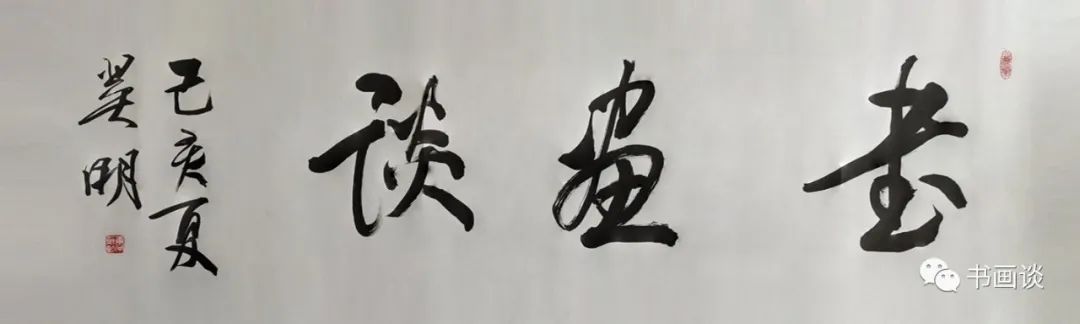 書畫談
己亥夏
明
书画谈